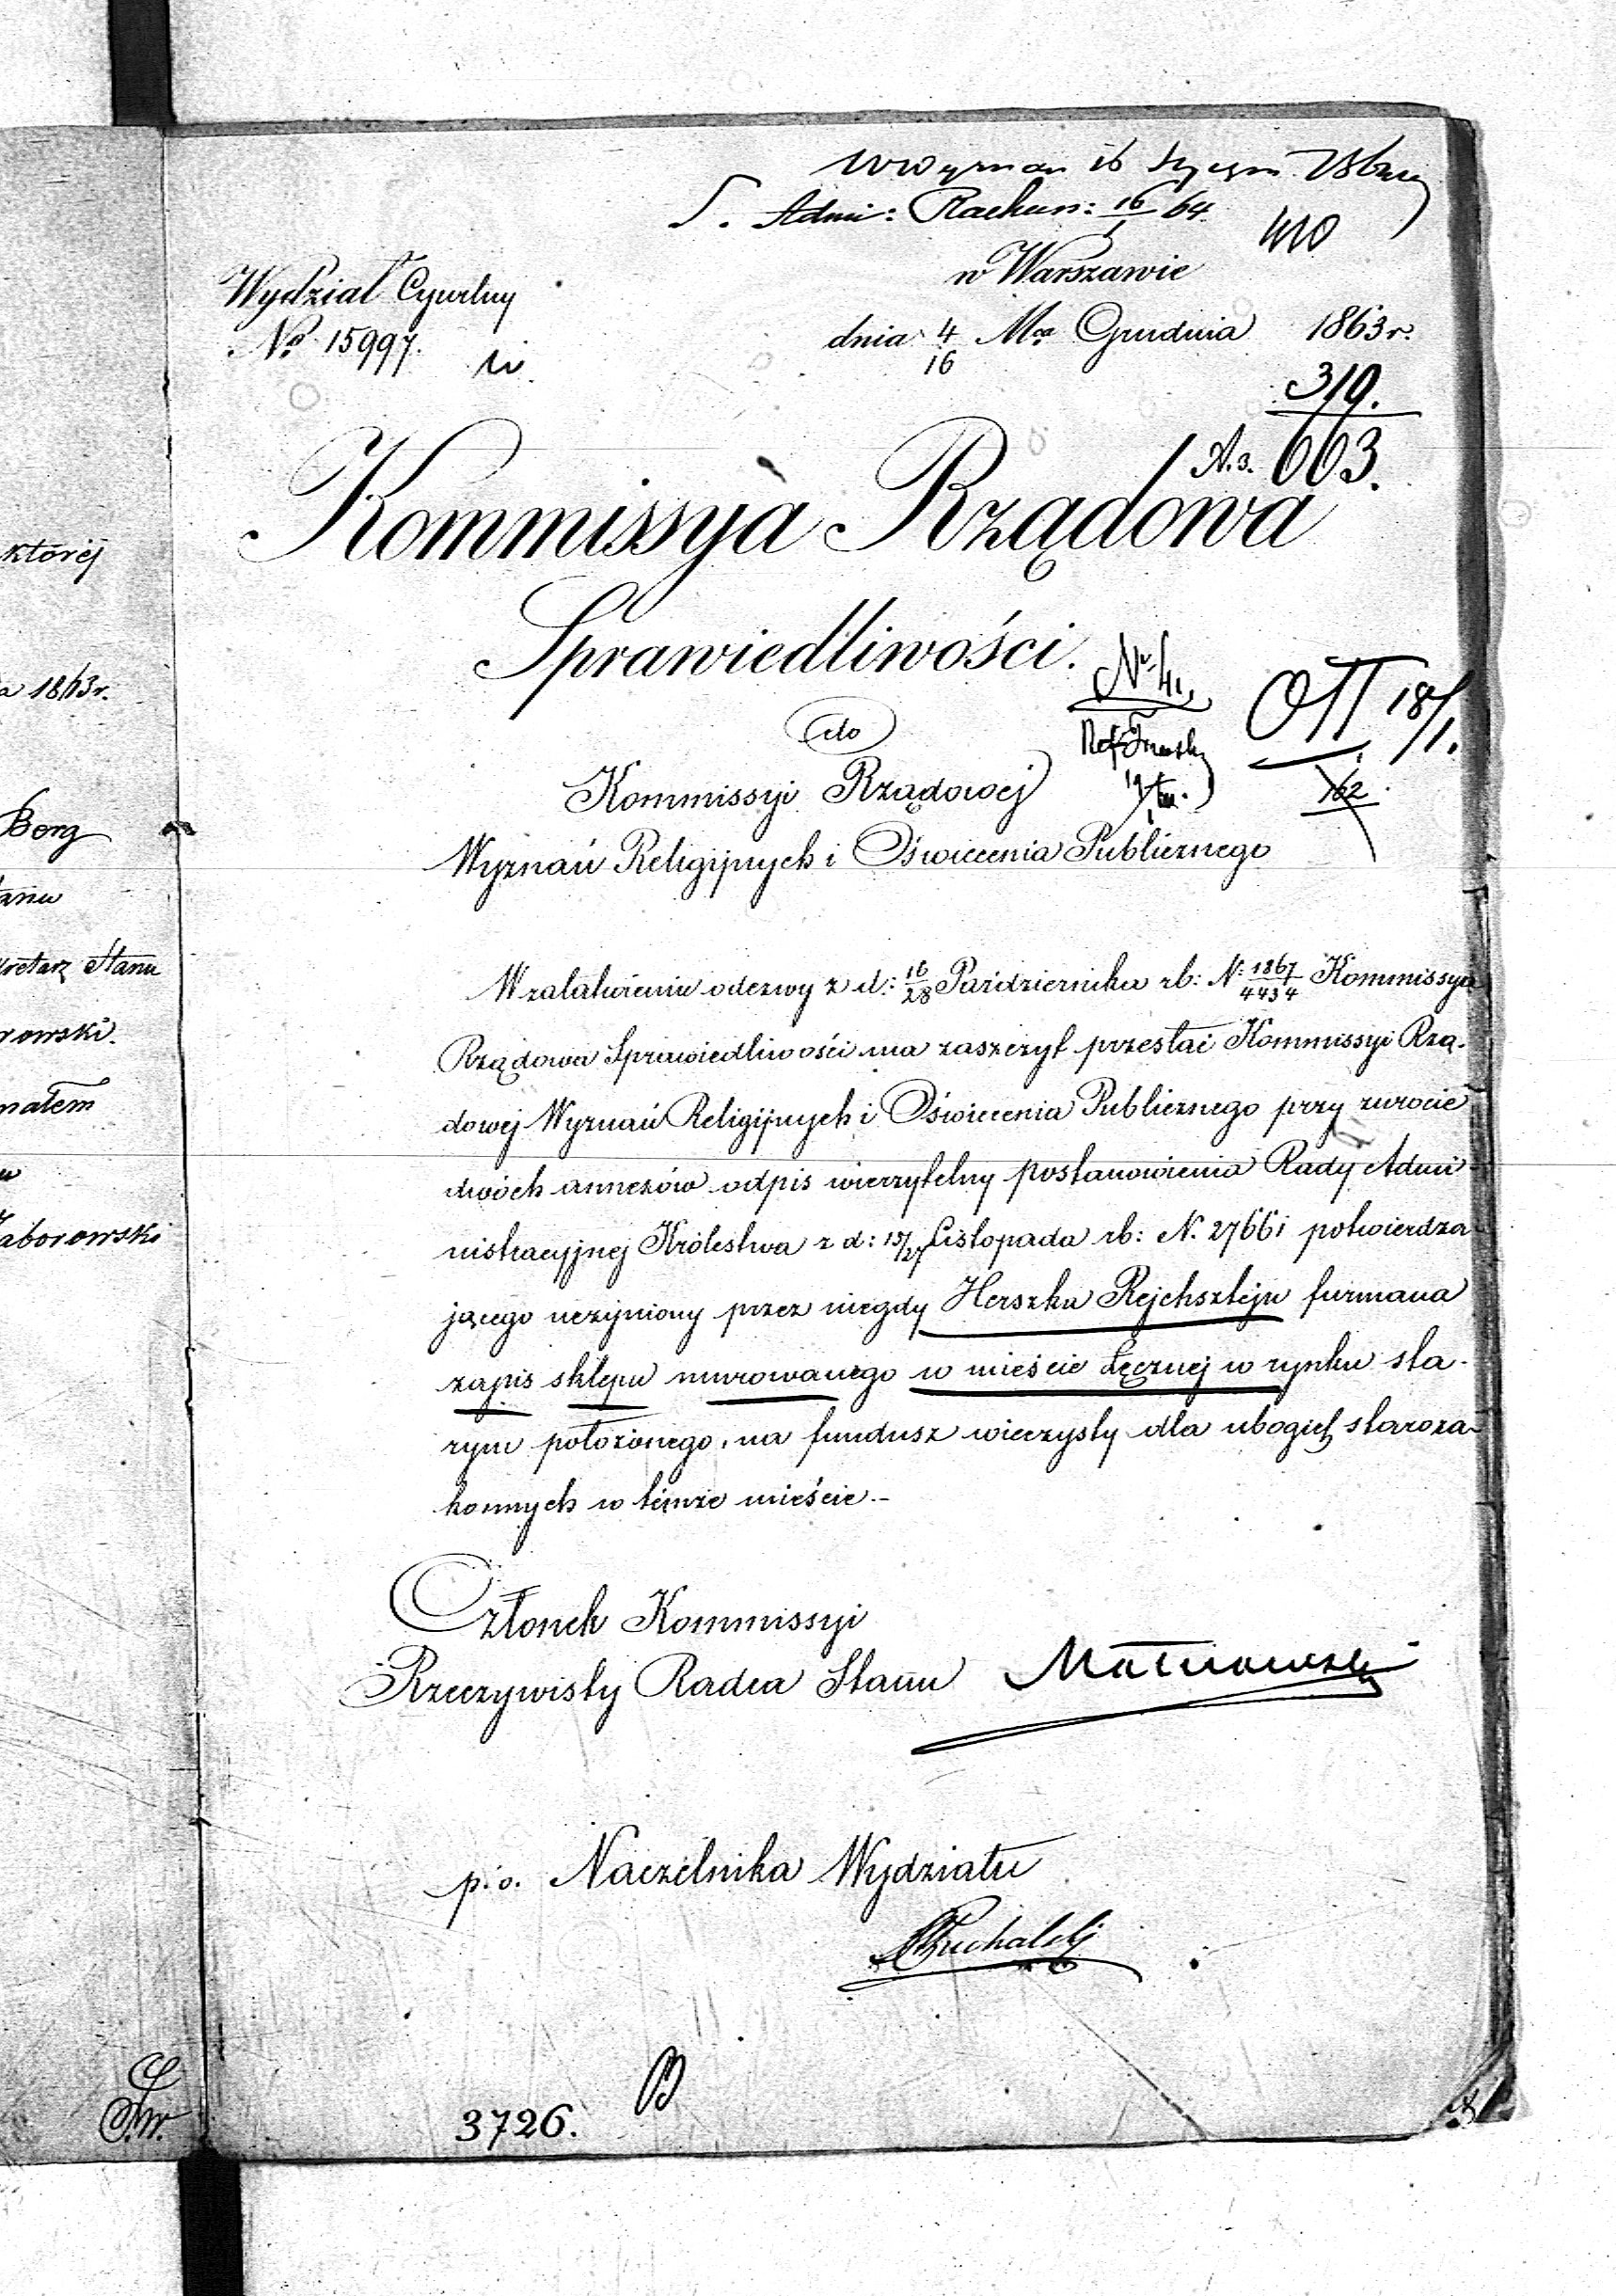 któréj
a 1863 r.
Berg
tanu
kretarz Stanu
rowski.
nałem
u
Zaborowski
S. Admi: Rachun: 16/1 64
410
w Warszawie
Wydział Cywilny
No. 15997.
dnia 4/16 Mca Grudnia 1863 r.
319.
A.3. 663.
Kommissya Rządowa
Sprawiedliwości.
No. 41
OTT 18/1.
do
162
Kommissyi Rządowej
Wyznań Religijnych i Oświecenia Publicznego
W załatwieniu odezwy z d: 16/28 Października rb: N: 1867/4434 Kommissya
Rządowa Sprawiedliwości ma zaszczyt przesłać Kommissyi Rzą-
dowej Wyznań Religijnych i Oświecenia Publicznego przy zwrocie
dwóch annexów odpis wierzytelny postanowienia Rady Admi-
nistracyjnej Królestwa z d: 15/27 Listopada rb: N. 27661 potwierdza-
jącego uczyniony przez niegdy Herszka Rejchsztejn furmana
zapis sklepu murowanego w mieście Łęcznej w rynku sta-
rym położonego, na fundusz wieczysty dla ubogich staroza-
konnych w témże mieście.-
Członek Kommissyi
Rzeczywisty Radca Stanu
p. o. Naczelnika Wydziału
Puchalski
3726.